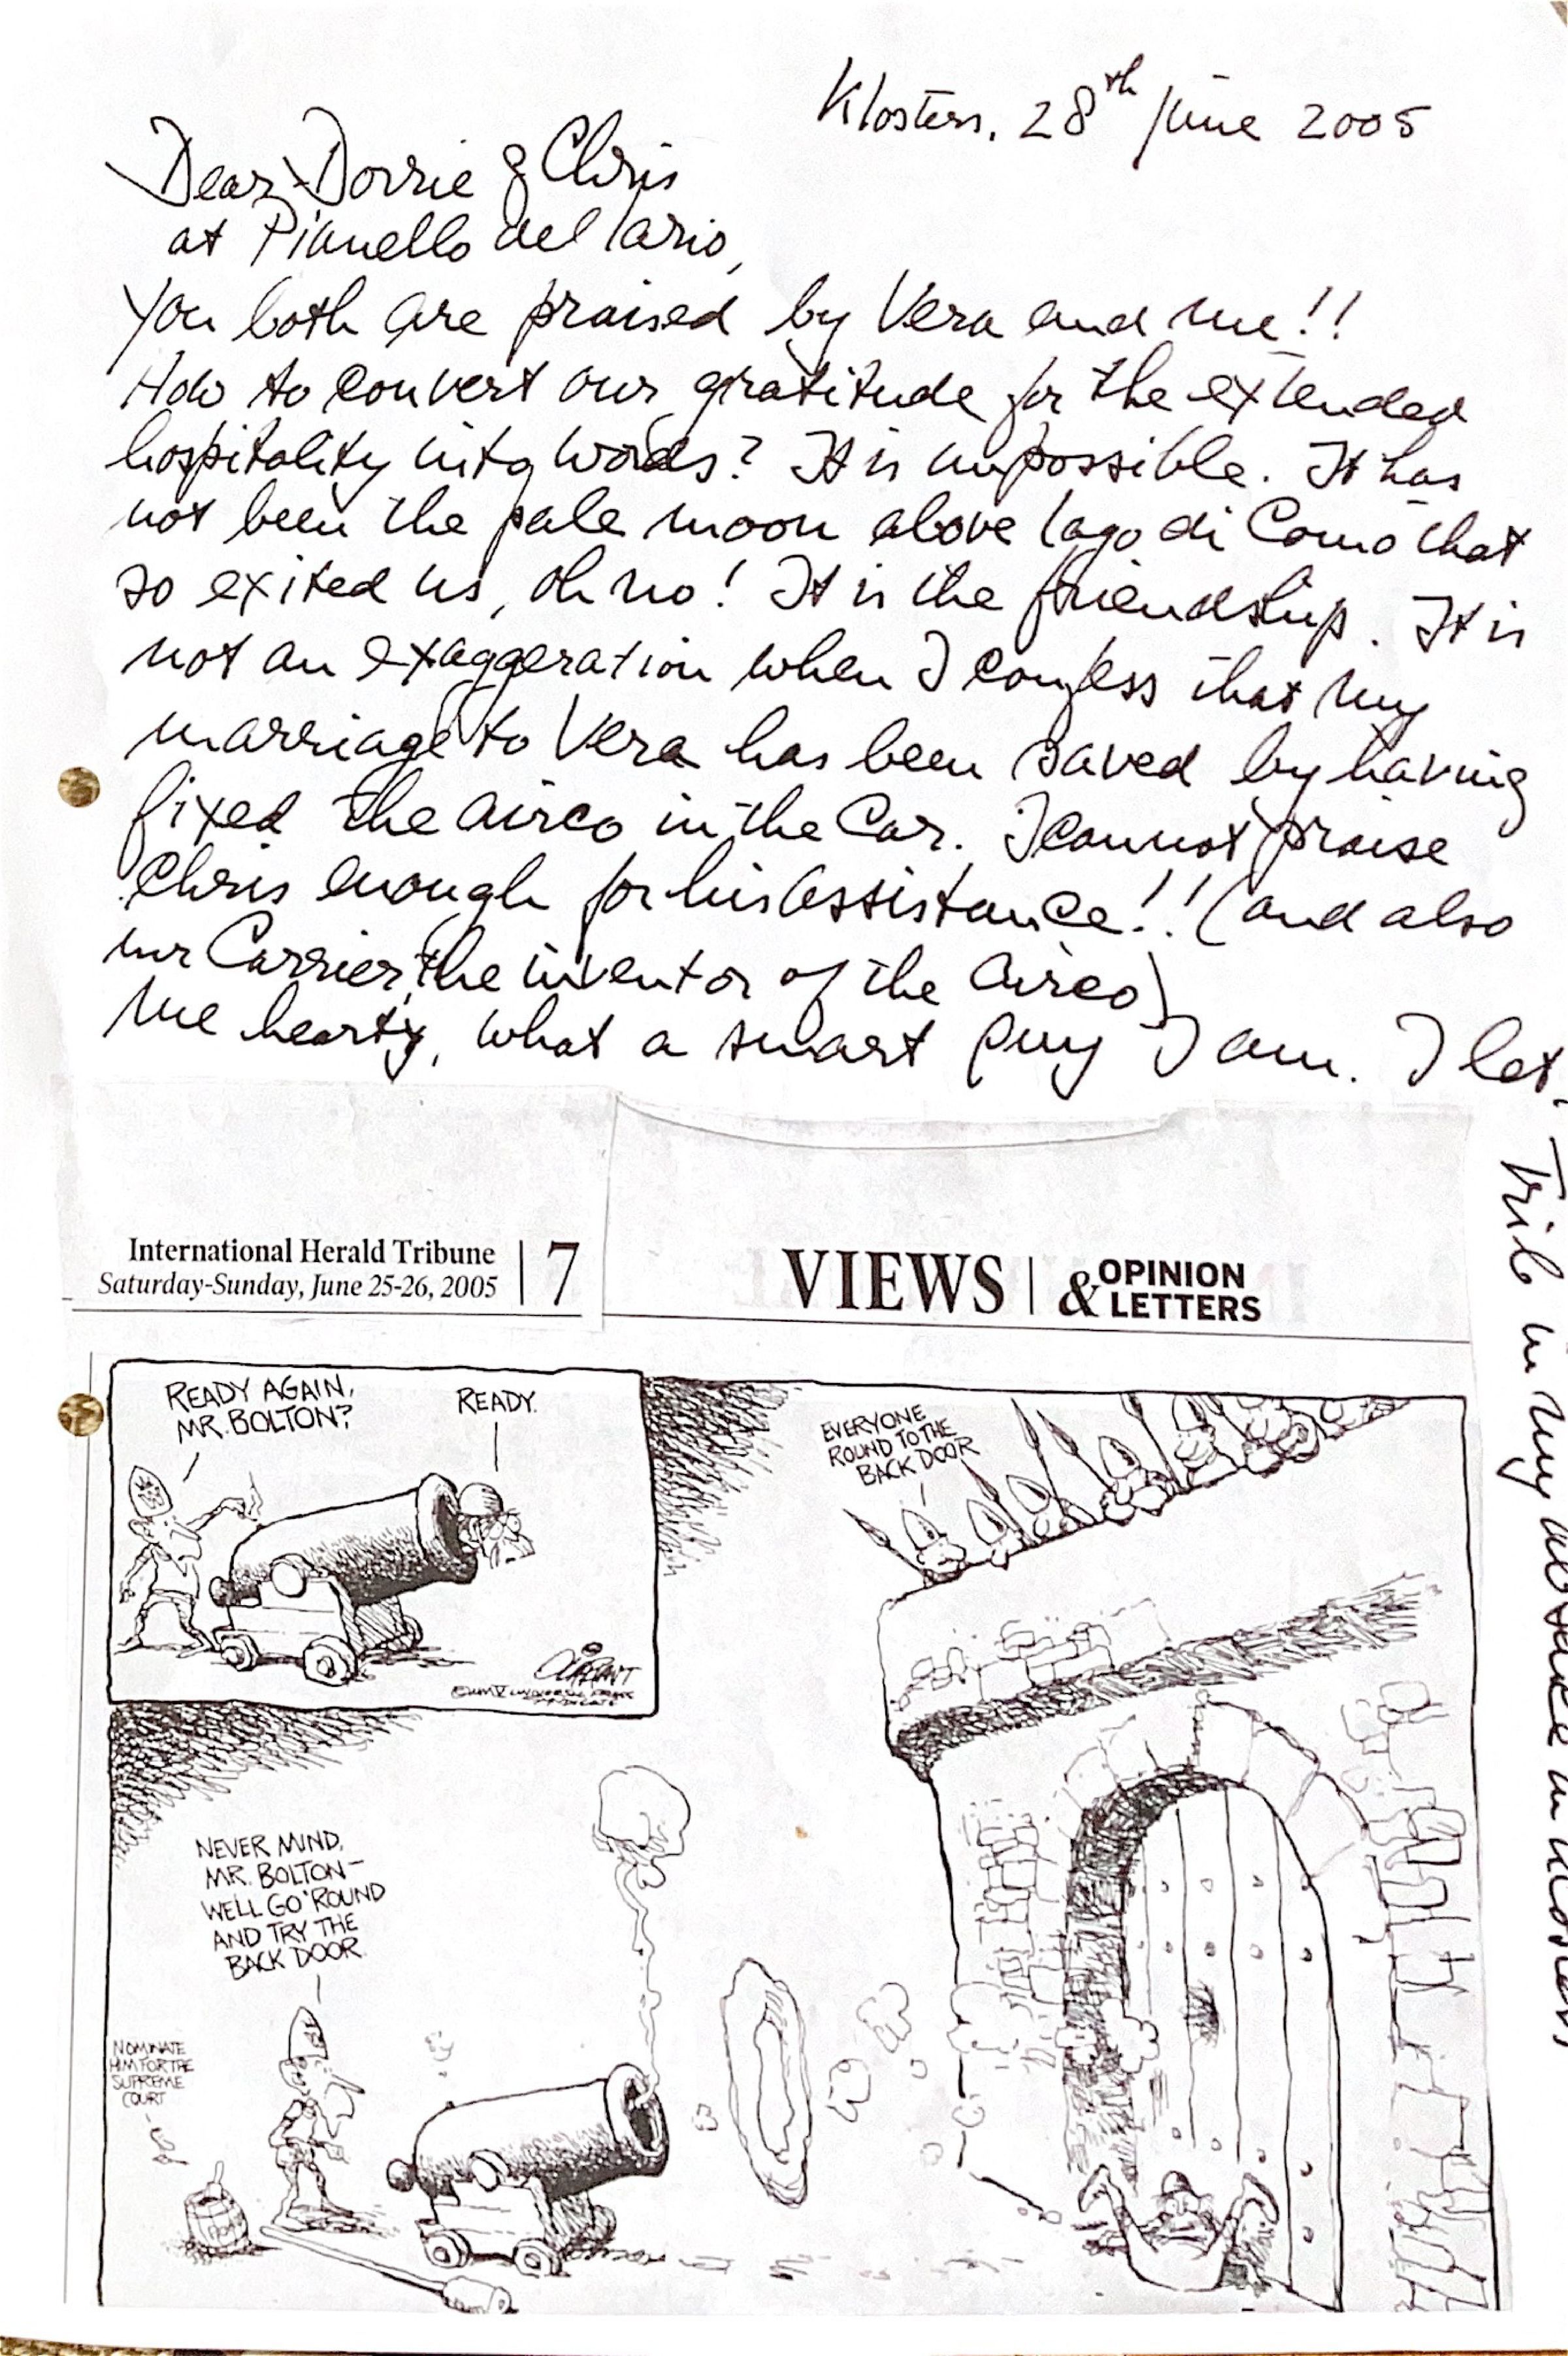 Klosters, 28th June 2005
Dear Dorrie & Chris
at Pianello del lario,
You both are praised by Vera and me!!
How to convert our gratitude for the extended
hospitality into words? It is impossible. It has
not been the pale moon above lago di Como that
so exited us, oh no! It is the friendship. It is
not an exaggeration when I confess that my
marriage to Vera has been saved by having
fixed the airco in the Car. I cannot praise
Chris enough for his assistance!! (and also
mr Carrier, the inventor of the airco)
Me hearty, what a smart guy I am. I let
Trib in my absence in Klosters
International Herald Tribune | 7
Saturday-Sunday, June 25-26, 2005
VIEWS | & OPINION
LETTERS
READY AGAIN,
MR. BOLTON?
READY.
OLIPHANT
EVERYONE
ROUND TO THE
BACK DOOR
NEVER MIND,
MR. BOLTON—
WE'LL GO 'ROUND
AND TRY THE
BACK DOOR.
NOMINATE
HIM FOR THE
SUPREME
COURT